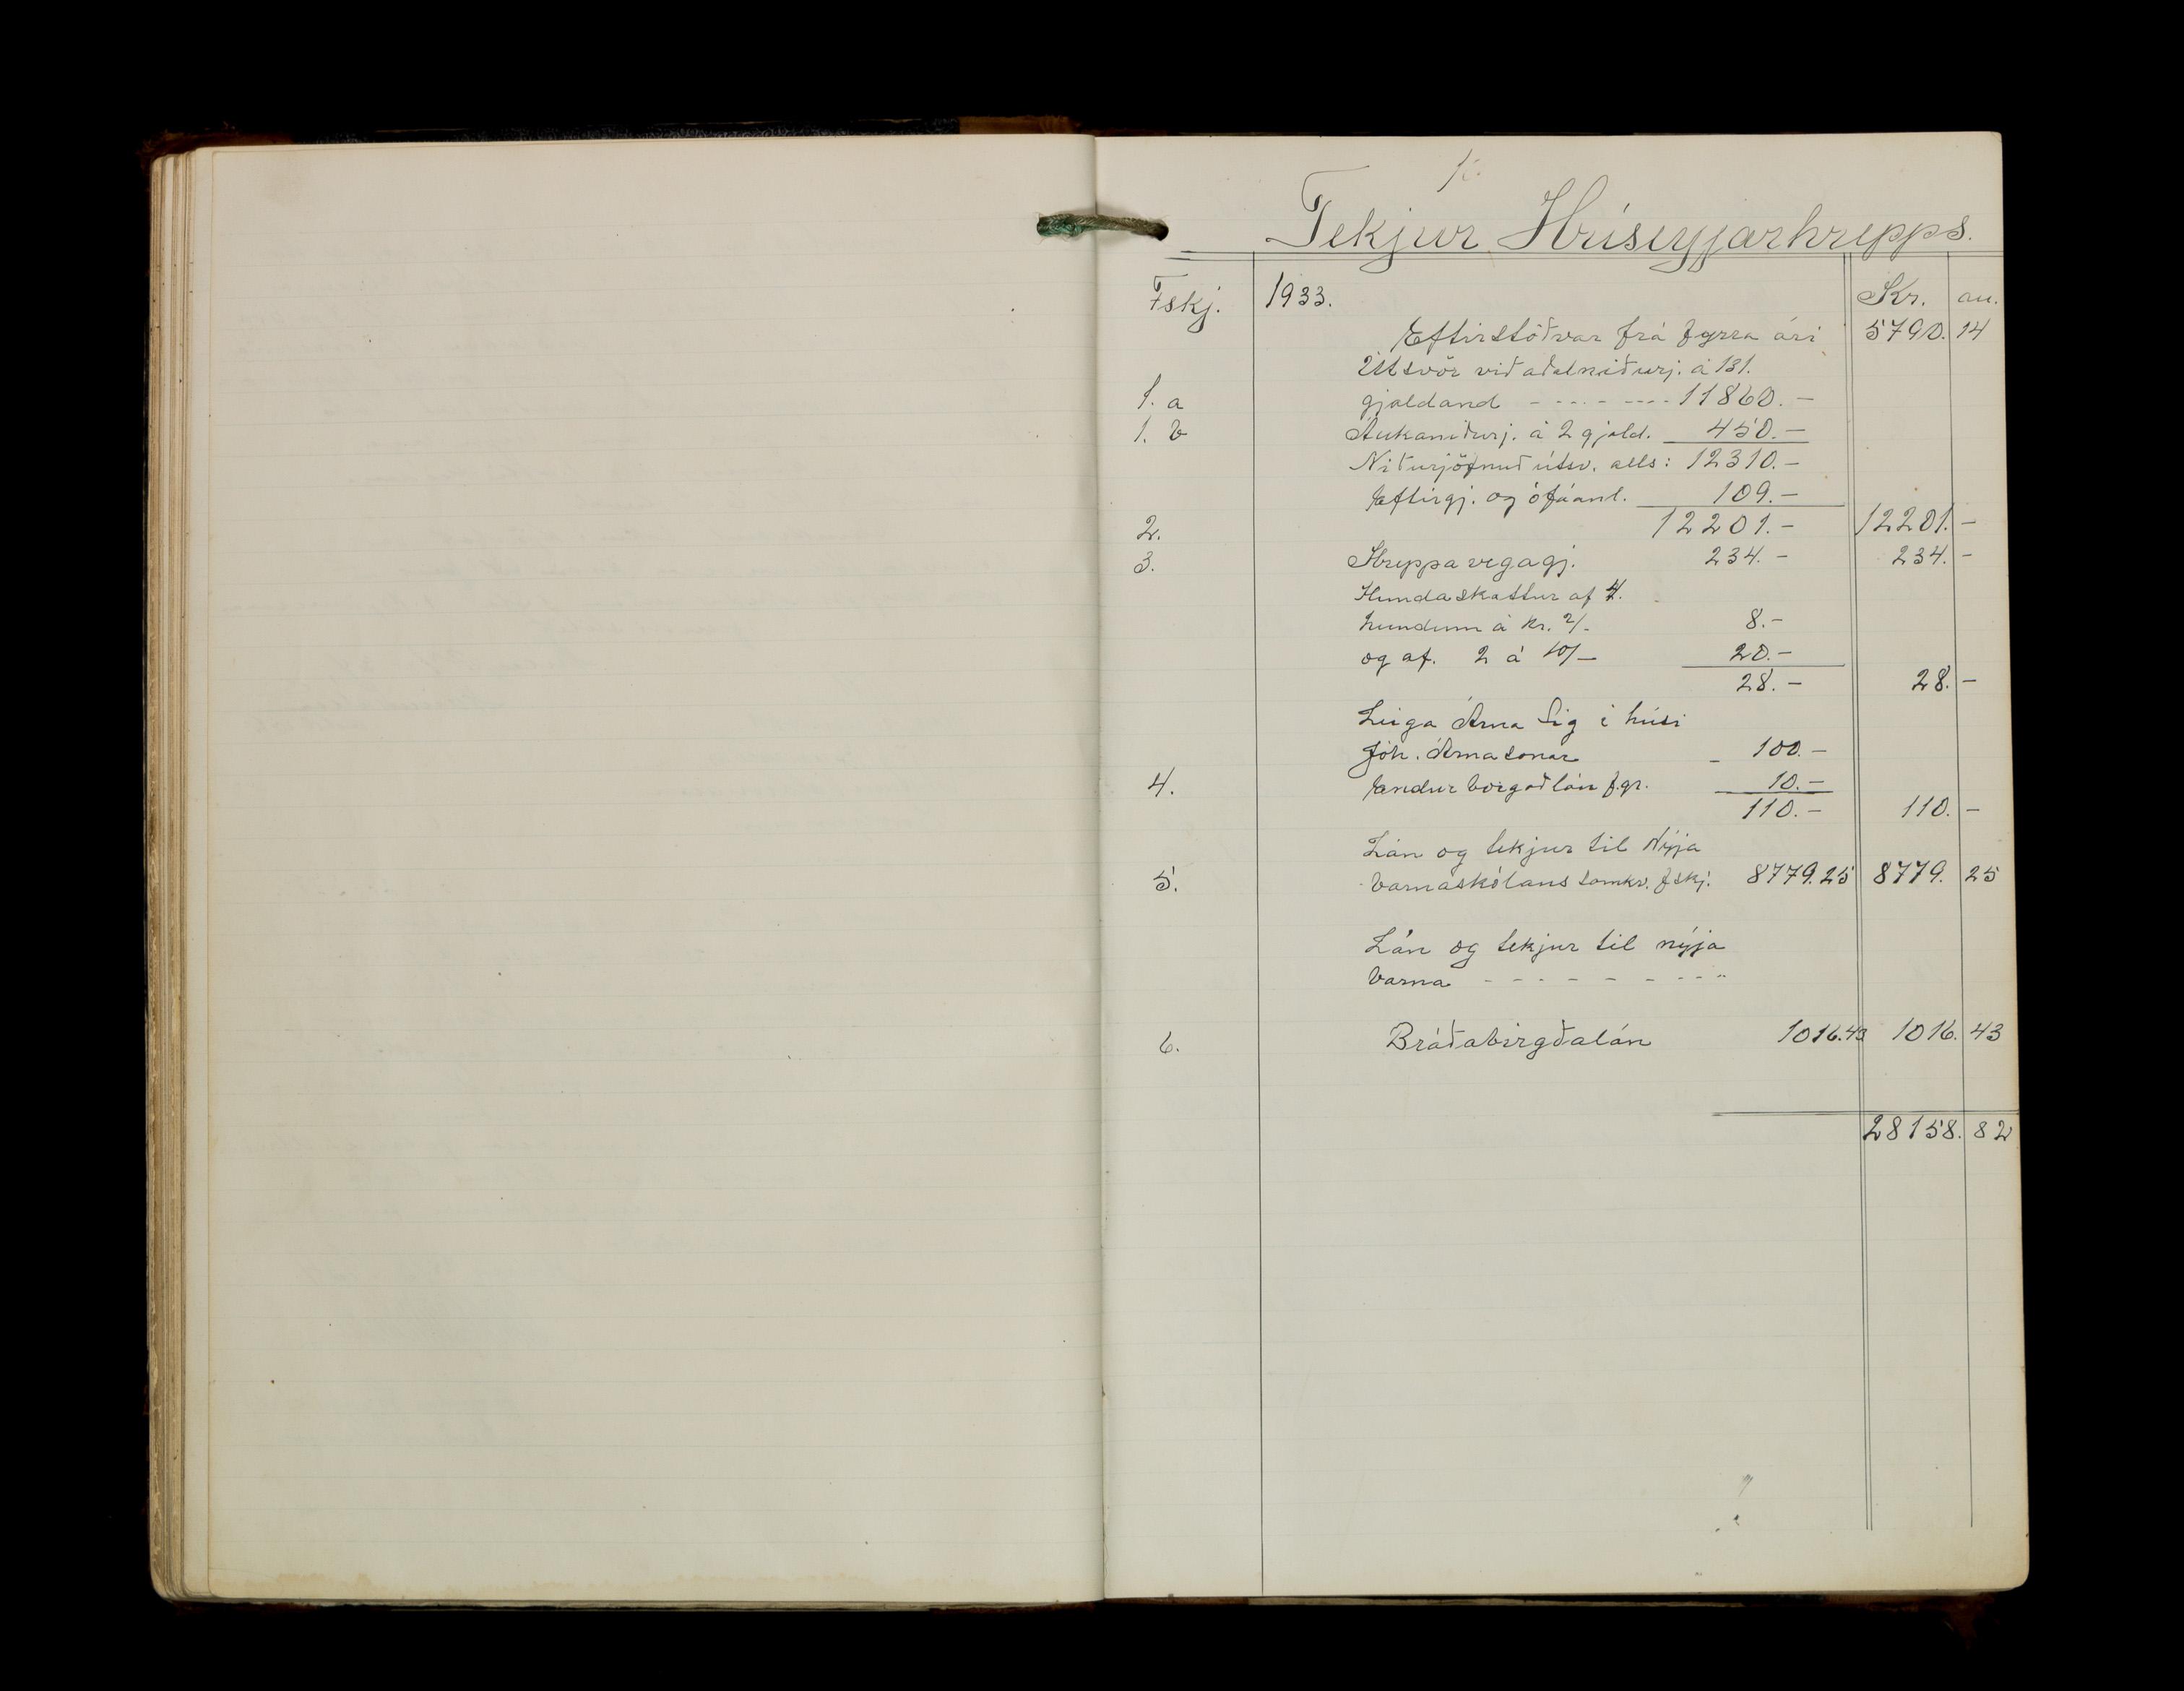 Tekjur Hríseyjarhrepps.
Fskj. 1933. Kr. au.
Eftirstöðvar frá fyrra ári 5790. 14
Útsvör við aðalniðurj. á 131.
1. a gjaldand - - - - - - - 11860. -
1. b Aukaniðurj. á 2 gjald. 450. -
Niðurjöfnuð útsv. alls: 12310. -
Eftirgj. og ófáanl. 109. -
2. 12201. - 12201. -
3. Hreppavegagj. 234. - 234. -
Hundaskattur af 4.
hundum á kr. 2/- 8. -
og af. 2 á 10/- 20. -
28. - 28. -
Leiga Árna Sig í húsi
Jóh. Árnasonar - 100. -
4. Endurborgað lán f.gr. 10. -
110. - 110. -
Lán og tekjur til Nýja
5. barnaskólans samkv. fskj. 8779.25 8779. 25
Lán og tekjur til nýja
barna - - - - - - - - "
6. Bráðabirgðalán 1016.43 1016. 43
28158. 82